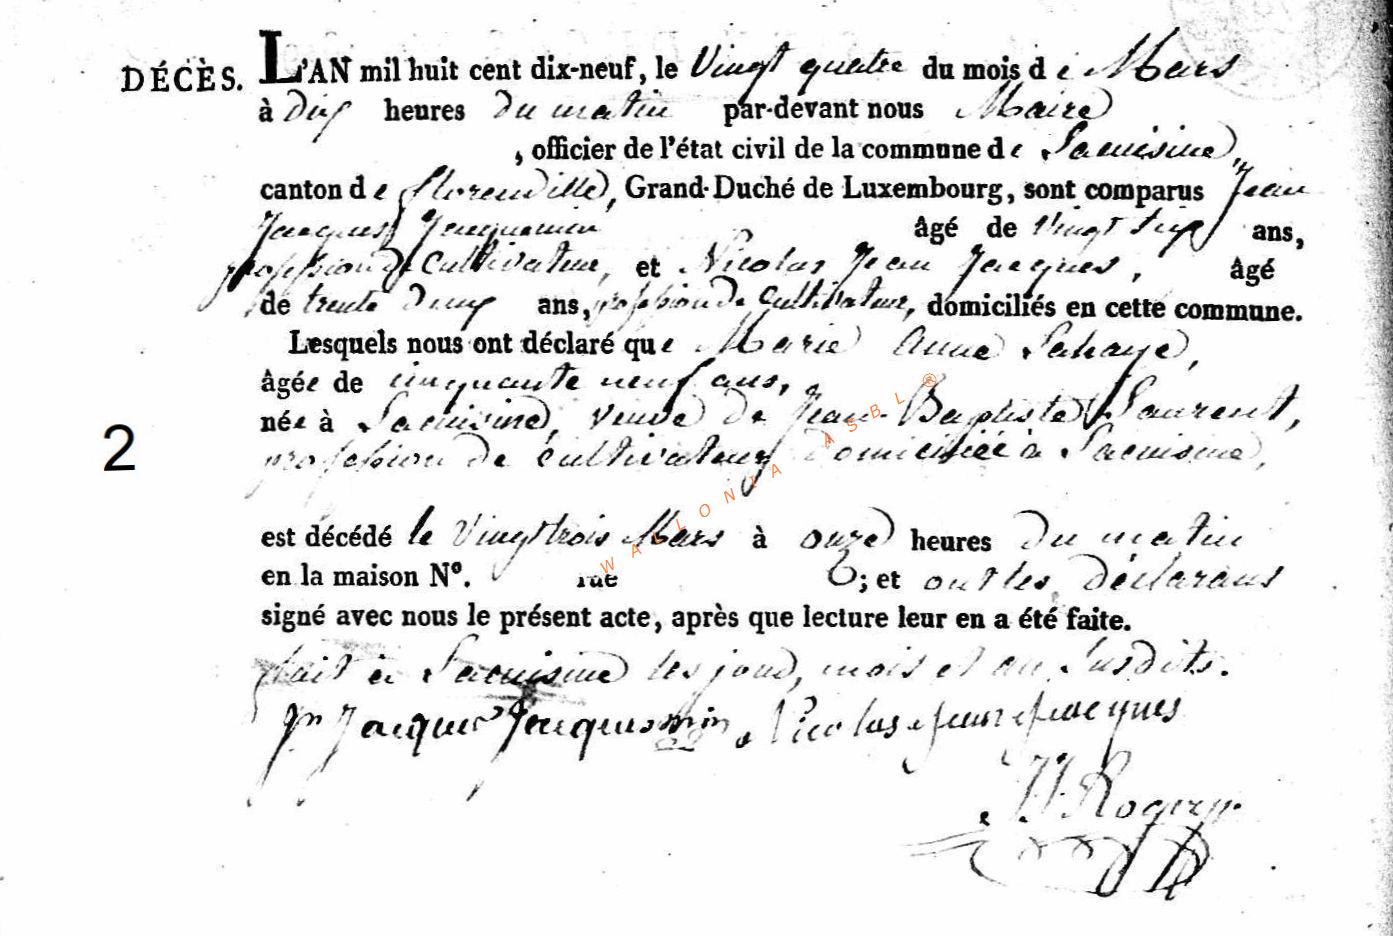 DÉCÈS. L'AN mil huit cent dix-neuf, le Vingt quatre du mois de Mars
à dix heures du matin par-devant nous Maire
, officier de l'état civil de la commune de Lacuisine,
canton de florenville, Grand-Duché de Luxembourg, sont comparus Jean
Jacques Jacquemin âgé de vingt six ans,
profession de Cultivateur, et Nicolas Jean Jacques, âgé
de trente deux ans, profession de Cultivateur, domiciliés en cette commune.
Lesquels nous ont déclaré que Marie Anne Lahaye,
âgée de cinquante neuf ans,
née à Lacuisine, veuve de Jean-Baptiste Laurent,
2
profession de cultivateur domiciliée à Lacuisine,
est décédé le Vingt trois Mars à onze heures du matin
en la maison N°. rue ; et ont les déclarans
signé avec nous le présent acte, après que lecture leur en a été faite.
fait à Lacuisine les jour, mois et an susdits.
Jn Jacques Jacquemin Nicolas jean jacques
WALLONIA ASBL ®